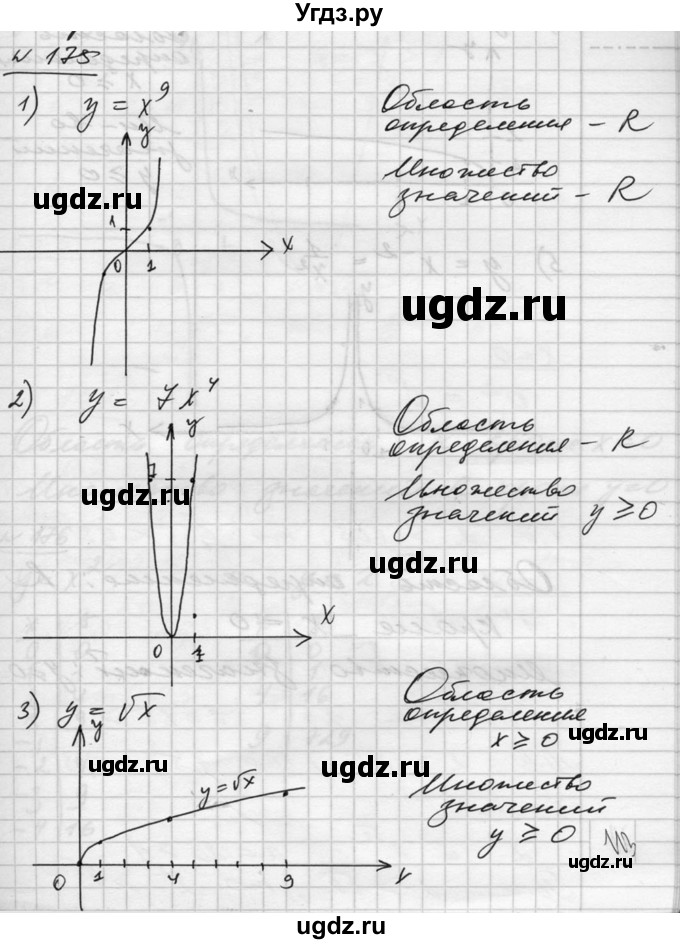 Угдз.ру
№ 175
1) y = x⁹
Область
определения – R
Множество
значений – R
y
1
0
1
x
ugdz.ru
ugdz.ru
2) y = 7x⁴
Область
определения – R
Множество
значений y ≥ 0
y
7
0
1
x
ugdz.ru
ugdz.ru
3) y = √x
Область
определения
x ≥ 0
Множество
значений
y ≥ 0
y
y = √x
0
1
4
9
ugdz.ru
ugdz.ru
ugdz.ru
ugdz.ru
ugdz.ru